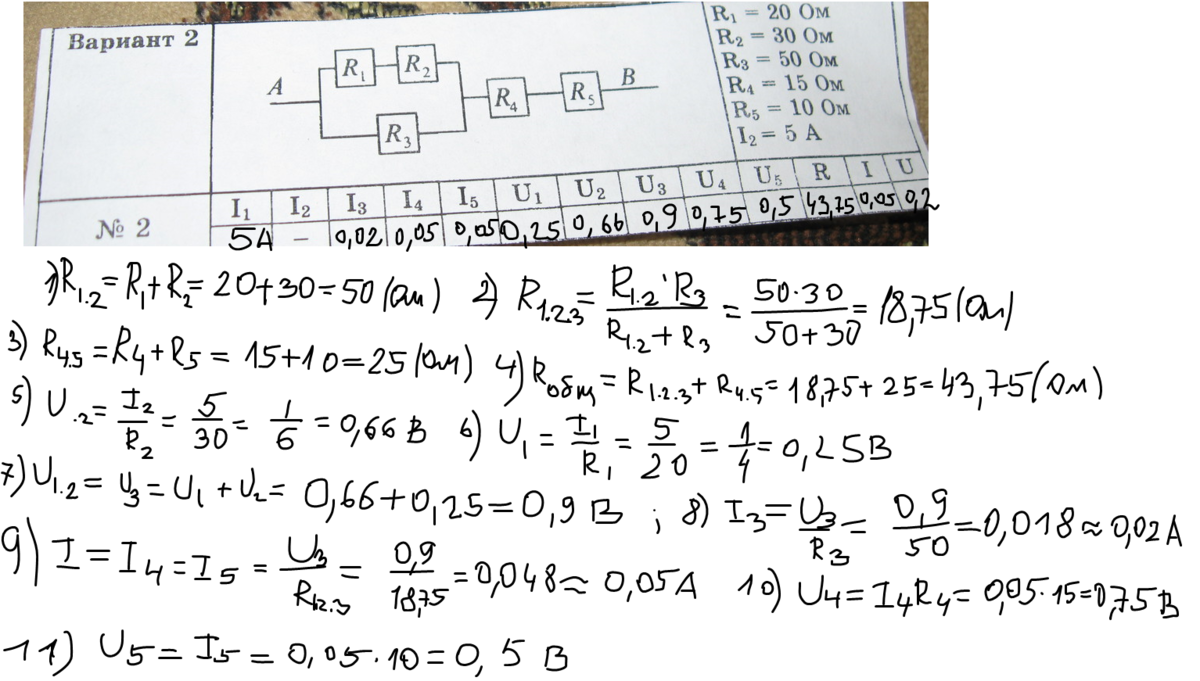 Вариант 2
A R₁ R₂ R₃ R₄ R₅ B
R₁ = 20 Ом
R₂ = 30 Ом
R₃ = 50 Ом
R₄ = 15 Ом
R₅ = 10 Ом
I₂ = 5 А
I₁ I₂ I₃ I₄ I₅ U₁ U₂ U₃ U₄ U₅ R I U
№ 2 5А – 0,02 0,05 0,05 0,25 0,66 0,9 0,75 0,5 43,75 0,05 0,2
1) R₁.₂ = R₁ + R₂ = 20 + 30 = 50 (Ом) 2) R₁.₂.₃ = R₁.₂ · R₃ / R₁.₂ + R₃ = 50·30 / 50+30 = 18,75 (Ом)
3) R₄.₅ = R₄ + R₅ = 15 + 10 = 25 (Ом) 4) Rобщ = R₁.₂.₃ + R₄.₅ = 18,75 + 25 = 43,75 (Ом)
5) U.₂ = I₂ / R₂ = 5 / 30 = 1 / 6 = 0,66 В 6) U₁ = I₁ / R₁ = 5 / 20 = 1 / 4 = 0,25 В
7) U₁.₂ = U₃ = U₁ + U₂ = 0,66 + 0,25 = 0,9 В ; 8) I₃ = U₃ / R₃ = 0,9 / 50 = 0,018 ≈ 0,02 А
9) I = I₄ = I₅ = U₃ / R₁.₂.₃ = 0,9 / 18,75 = 0,048 ≈ 0,05 А 10) U₄ = I₄R₄ = 0,05·15 = 0,75 В
11) U₅ = I₅ = 0,05·10 = 0,5 В